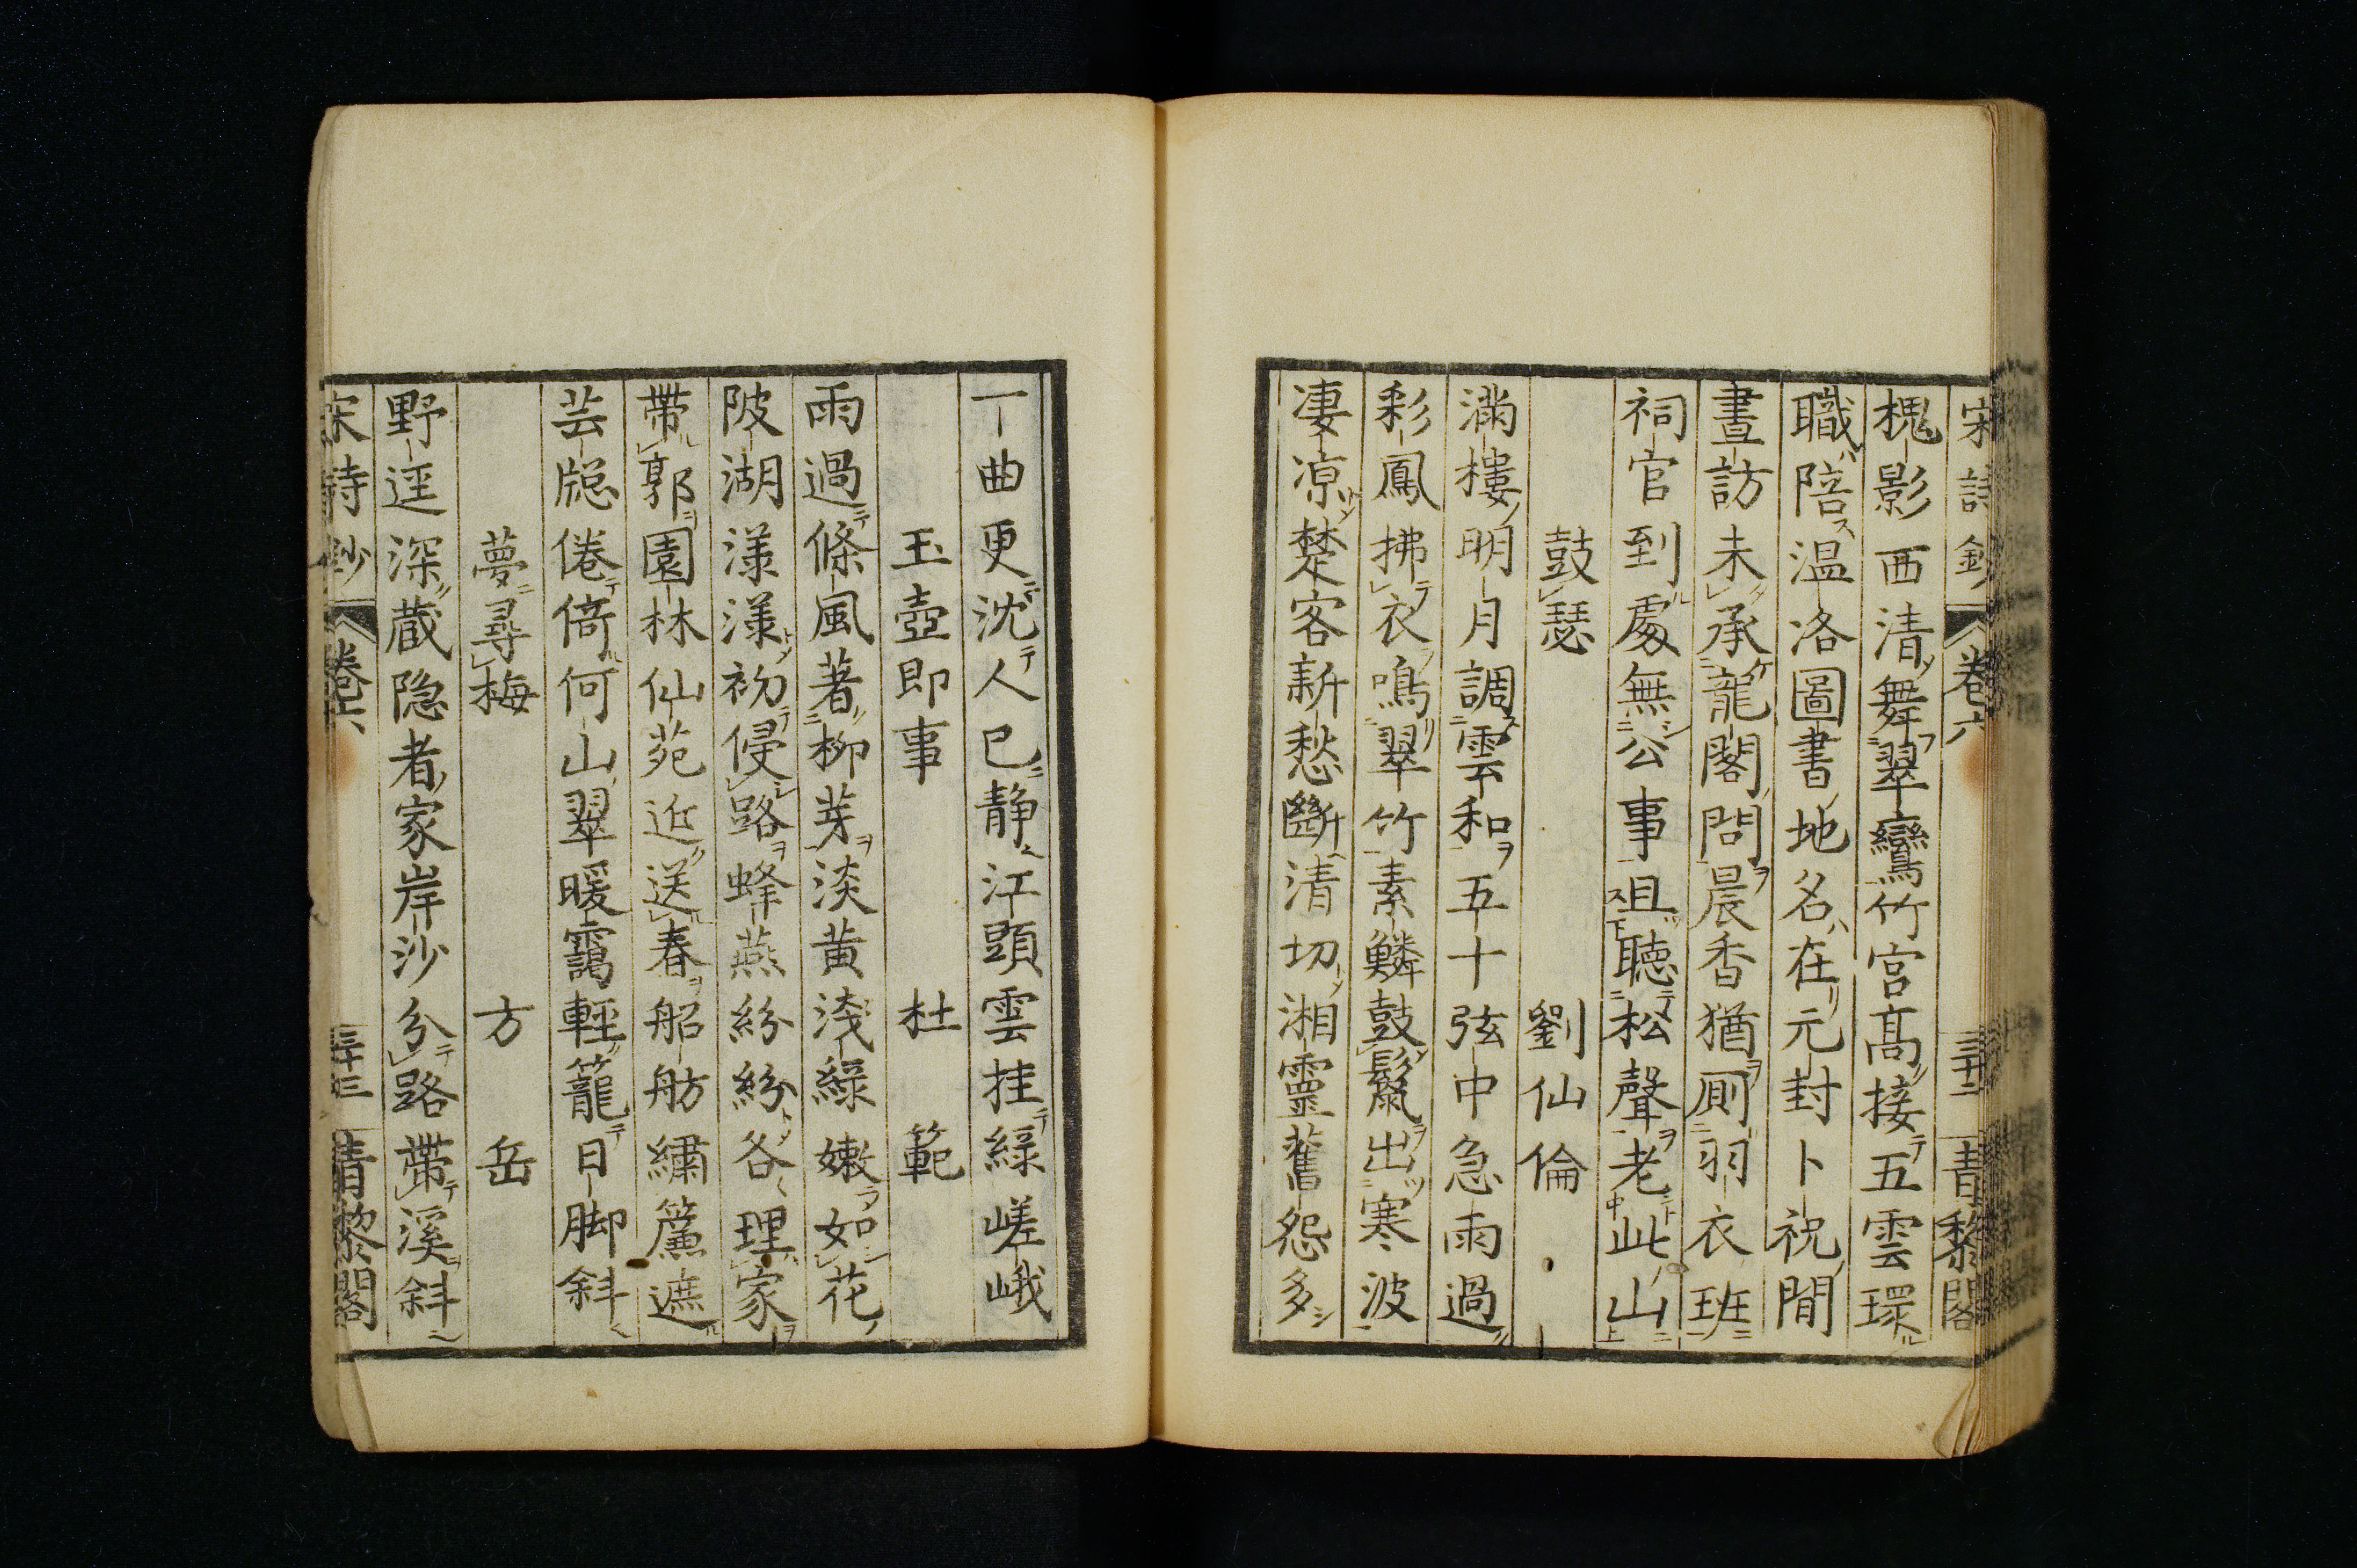 宋詩鈔 卷六 三十二 青黎閣
槐影西清舞翠鸞竹宮高接五雲環
職陪溫洛圖書地名在元封卜祝間
晝訪未承龍閣問晨香猶厠羽衣班
祠官到處無公事咀聽松聲老此山
鼓瑟 劉仙倫
滿樓明月調雲和五十弦中急雨過
彩鳳拂衣鳴翠竹素鱗鼓鬣出寒波
凄凉楚客新愁斷清切湘靈舊怨多
一曲更沈人已静江頭雲挂綠嵯峨
玉壺即事 杜範
雨過條風著柳芽淡黄淺綠嫩如花
陂湖漾漾初侵路蜂燕紛紛各理家
帶郭園林仙苑近送春船舫繡簾遮
芸牎倦倚何山翠暖靄輕籠日脚斜
夢尋梅 方岳
野逕深蔵隐者家岸沙分路帶溪斜
宋詩鈔 卷六 三十三 青黎閣